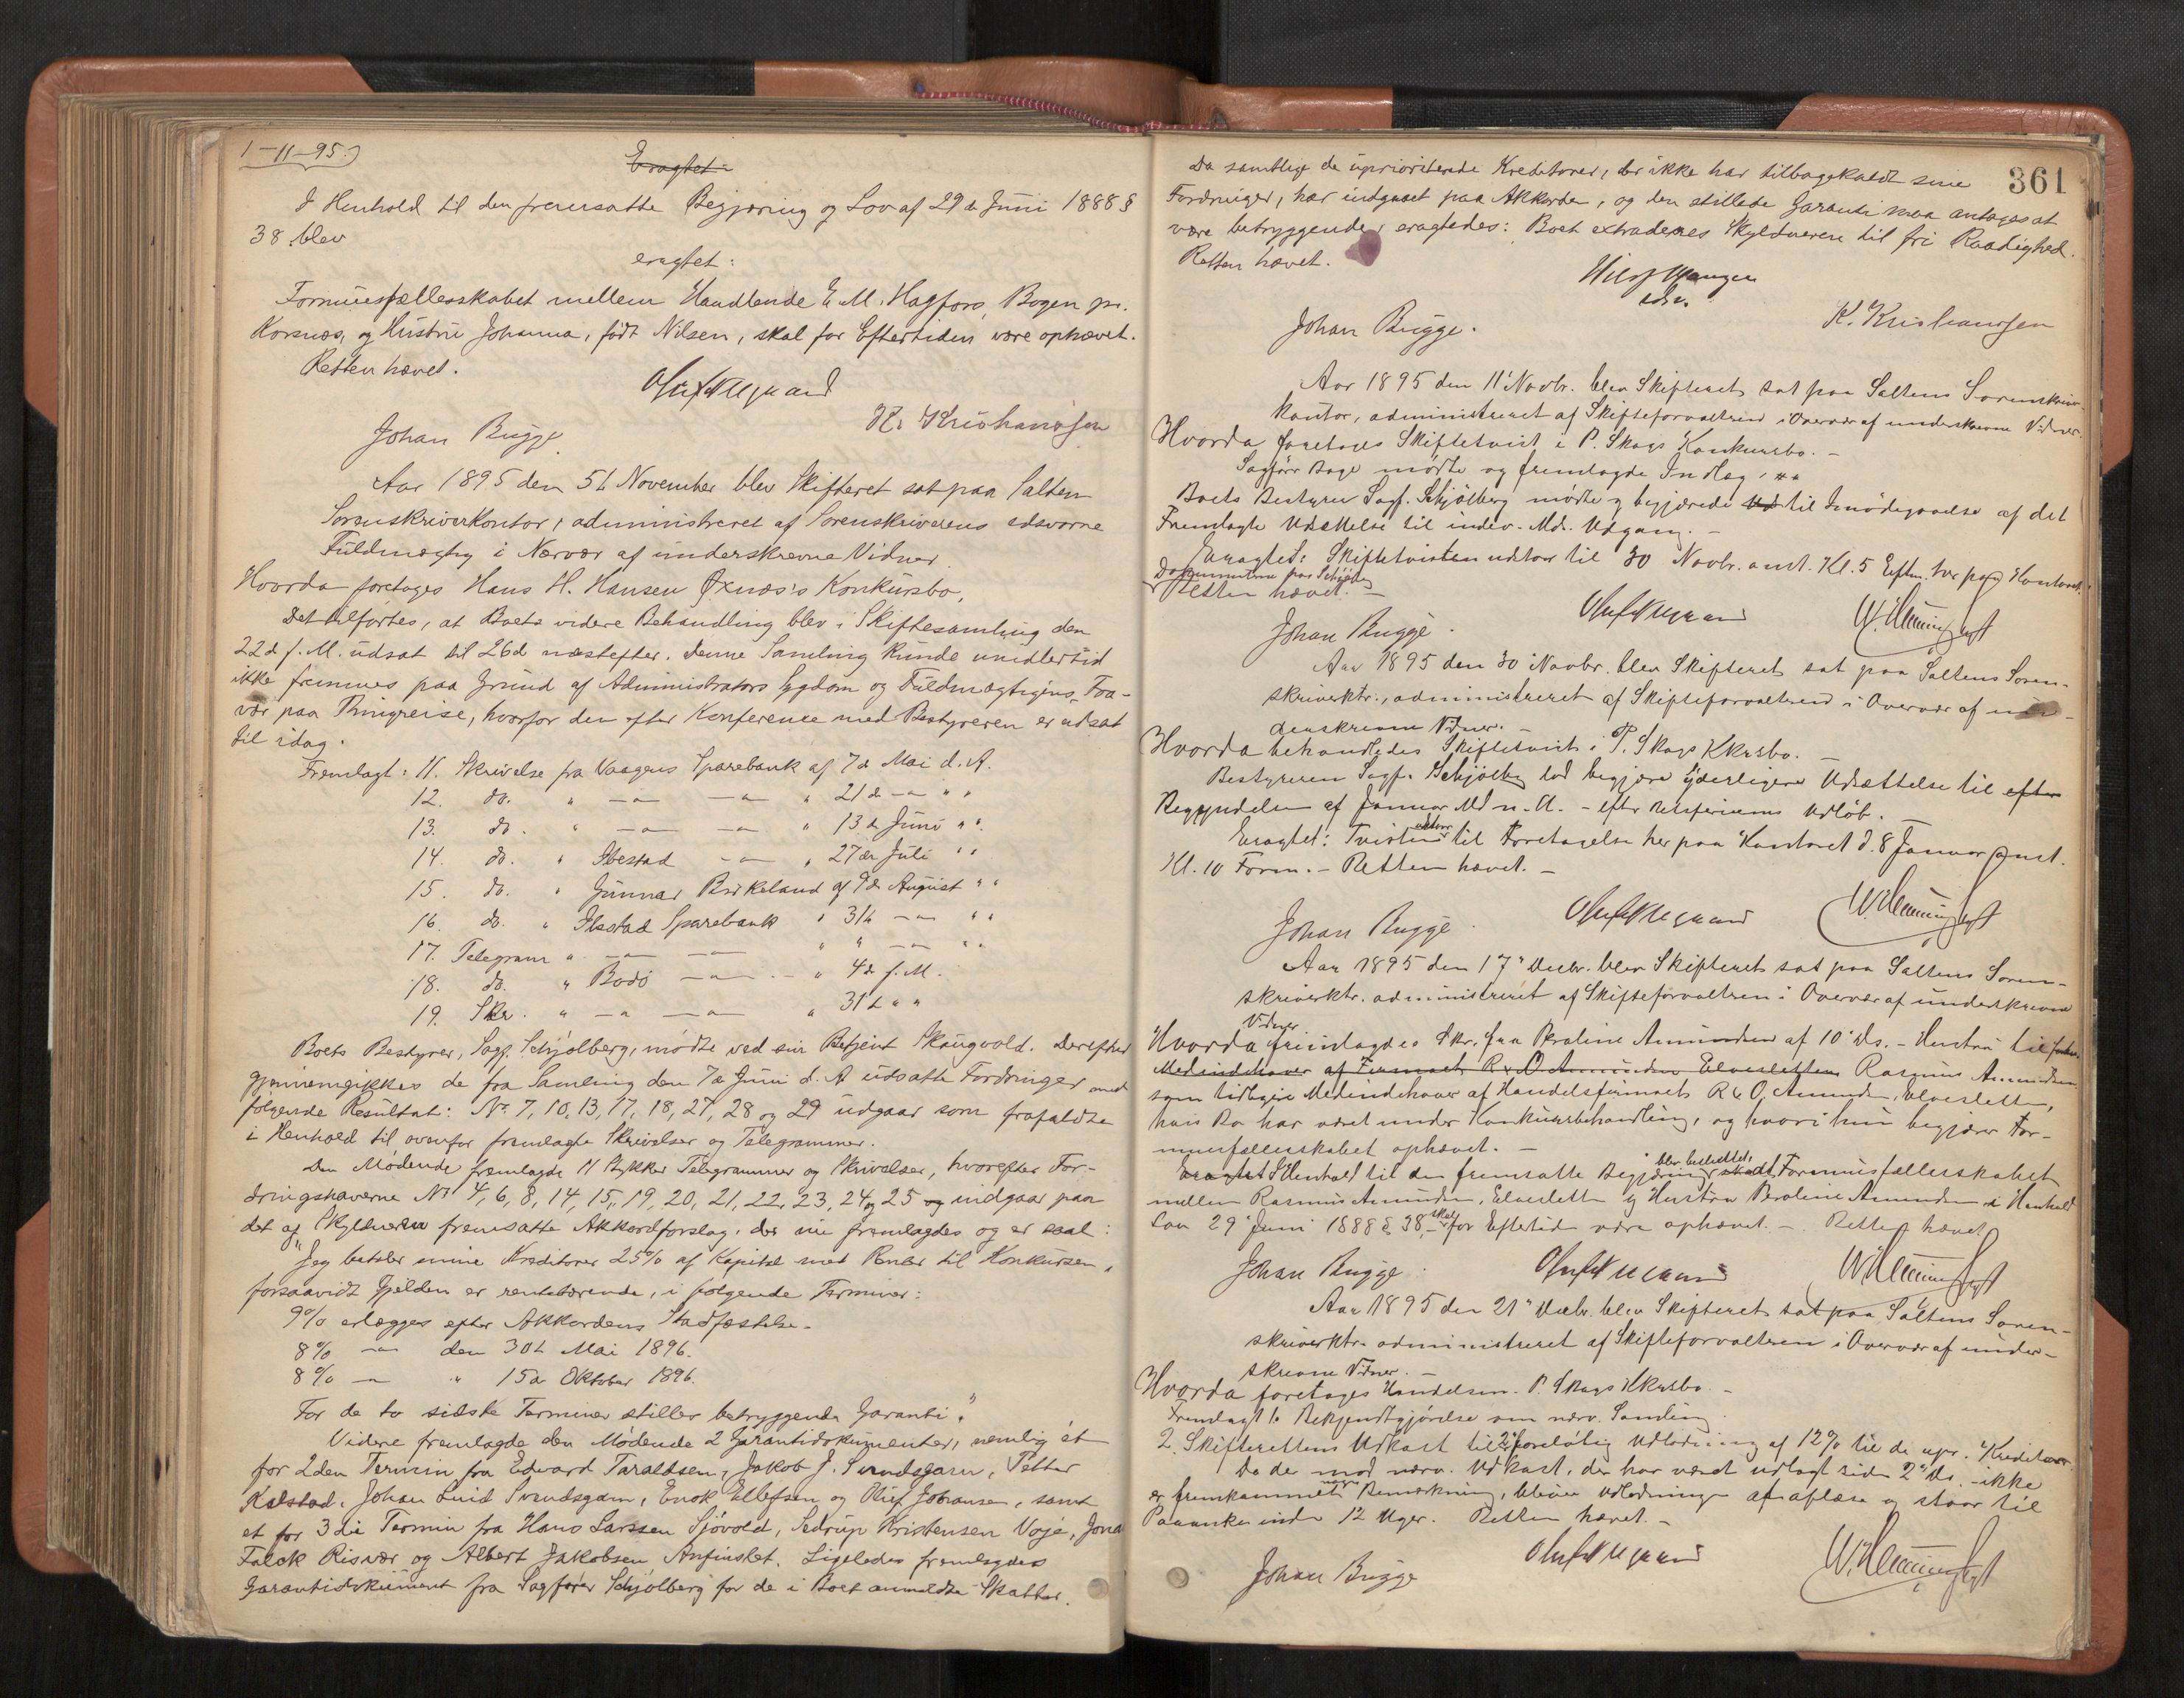 1-11-95.)
Eragtet:
I Henhold til den fremsatte Begjæring og Lov af 29de Juni 1888 §
38 blev
eragtet:
Formuesfællesskabet mellem Handlende E. M. Hagfors, Bogen pr.
Korsnæs, og Hustru Johanna, født Nilsen, skal for Eftertiden være ophævet.
Retten hævet.
Johan Bugge
K. Kristiansen
Aar 1895 den 5te November blev Skifteret sat paa Salten
Sorenskriverkontor, administreret af Sorenskriverens edsvorne
Fuldmægtig i Nærvær af underskrevne Vidner.
Hvorda foretoges Hans H. Hansen Øxnæs's Konkursbo.
Det tilførtes, at Boets videre Behandling blev i Skiftesamling den
22de f. M. udsat til 26d næstefter. Denne Samling kunde imidlertid
ikke fremmes paa Grund af Administrators Sygdom og Fuldmægtigens Fra-
vær paa Thingreise, hvorfor den efter Konference med Bestyreren er udsat
til idag.
Fremlagt: 11. Skrivelse fra Vaagens Sparebank af 7de Mai d. A.
12. do. " -"- -"- " 21de -"- " "
13. do. " -"- -"- " 13de Juni " ".
14. do. " Ibestad -"- " 27de Juli " "
15. do. " Gunnar Birkeland af 9de August " "
16. do. " Ibestad Sparebank " 31te -"- " "
17. Telegram " -"- -"- " " -"- " "
18. do. " Bodø -"- " 4de f. M.
19. Skr. " -"- -"- " 31te " "
Boets Bestyrer, Sagf. Schjølberg, mødte ved sin Betjent Skaugvold. Derefter
gjennemgikkes de fra Samling den 7de Juni d. A udsatte Fordringer med
følgende Resultat: No 7, 10, 13, 17, 18, 27, 28 og 29 udgaar som frafaldte
i Henhold til ovenfor fremlagte Skrivelser og Telegrammer.
Den Mødende fremlagde 11 Stykker Telegrammer og Skrivelser, hvorefter For-
dringshaverne No 4, 6, 8, 14, 15, 19, 20, 21, 22, 23, 24 og 25 og indgaar paa
det af Skyldneren fremsatte Akkordforslag, der nu fremlagdes og er saal:
"Jeg betaler mine Kreditorer 25% af Kapital med Renter til Konkursen,
forsaavidt Gjelden er rentebærende, i følgende Terminer:
9% erlægges efter Akkordens Stadfæstelse.
8% -"- den 30te Mai 1896.
8% -"- " 15de Oktober 1896.
For de to sidste Terminer stilles betryggende Garanti."
Videre fremlagde den Mødende 2 Garantidokumenter, nemlig ét
for 2den Termin fra Edvard Taraldsen, Jakob J. Svendsgam, Petter
Kalstad, Johan Luid Svendsgam, Enok Ellefsen og Oluf Johansen, samt
et for 3die Termin fra Hans Larssen Sjøvold, Sedrup Kristensen Voje, Jona
Falck Risvær og Albert Jakobsen Anfinslet. Ligeledes fremlagdes
Garantidokument fra Sagfører Schjølberg for de i Boet anmeldte Skatter.
361
Da samtlige de uprioriterede Kreditorer, der ikke har tilbagekaldt sine
Fordringer, har indgaaet paa Akkorden, og den stillede Garanti maa antages at
være betryggende, eragtedes: Boet extraderes Skyldneren til fri Raadighed.
Retten hævet.
Johan Bugge.
K. Kristiansen
Aar 1895 den 11' Novbr. blev Skifteret sat paa Saltens Sorenskriver-
kontor, administreret af Skifteforvalteren i Overvær af underskrevne Vidner.
Hvorda foretoges Skiftetvist i P. Skags Konkursbo.-
Sagfører Bage mødte og fremlagde Indlæg,
Boets Bestyrer Sagf. Schjølberg mødte og begjærede Ud til Imødegaaelse af det
Fremlagte Udsættelse til indev. Mds. Udgang.-
Eragtet: Skiftetvisten udstaar til 30 Novbr. amt. Kl. 5 Eftm. her paa Kontoret.
Dokumenterne paa Schjølberg
Retten hævet.-
Johan Bugge.
Aar 1895 den 30' Novbr. blev Skifteret sat paa Saltens Soren-
skriverktr., administreret af Skifteforvalteren i Overvær af un-
derskrevne Vidner.-
Hvorda behandledes Skiftetvist i P. Skags Kkrsbo.-
Bestyreren Sagf. Schjølberg lod begjære yderligere Udsættelse til efter
Begyndelsen af Januar Md n. A. - efter Retsferiens Udløb.
Eragtet: Tvisten udstaar til Foretagelse her paa Kontoret d. 8 Januar amt.
Kl. 10 Form.- Retten hævet.-
Johan Bugge.
Aar 1895 den 17' Decbr. blev Skifteret sat paa Saltens Soren-
skriverktr. administreret af Skifteforvalteren i Overvær af underskrevne
Vidner
Hvorda fremlagdes Skr. fra Peroline Amundsen af 10' ds. - Hustru til forhv.
Medindehaver af Firmaet R & O Amundsen Elveslettens Rasmus Amundsen,
som tidligere Medindehaver af Handelsfirmaet R & O, Amundsen, Elveslett,
hvis Bo har været under Konkursbehandling, og hvori hun begjærer For-
muesfællesskabet ophævet.-
Eragtet I Henhold til den fremsatte Begjæring blev besluttet: skadt, Formuesfællesskabet
mellem Rasmus Amundsen, Elveslett og Hustru Peroline Amundsen i Henhold
Lov 29' Juni 1888 § 38,- skal for Eftertid være ophævet.- Retten hævet
Johan Bugge.
Aar 1895 den 21' Decbr. blev Skifteret sat paa Saltens Soren-
skriverktr. administreret af Skifteforvalteren i Overvær af under-
skrevne Vidner.-
Hvorda foretoges Handelsm. P. Skags Kkrsbo.-
Fremlagt 1. Bekjendtgjørelse om nærv. Samling.
2. Skifterettens Udkast til 2' foreløbig Udlodning af 12% til de upr. Kreditorer.
Da der mod nærv. Udkast, der har været udlagt siden 2' ds. - ikke
er fremkommet nogen Bemærkning, blev Udlodningen afaflæst og staar til
Paaanke inden 12 Uger. Retten hævet.-
Johan Bugge